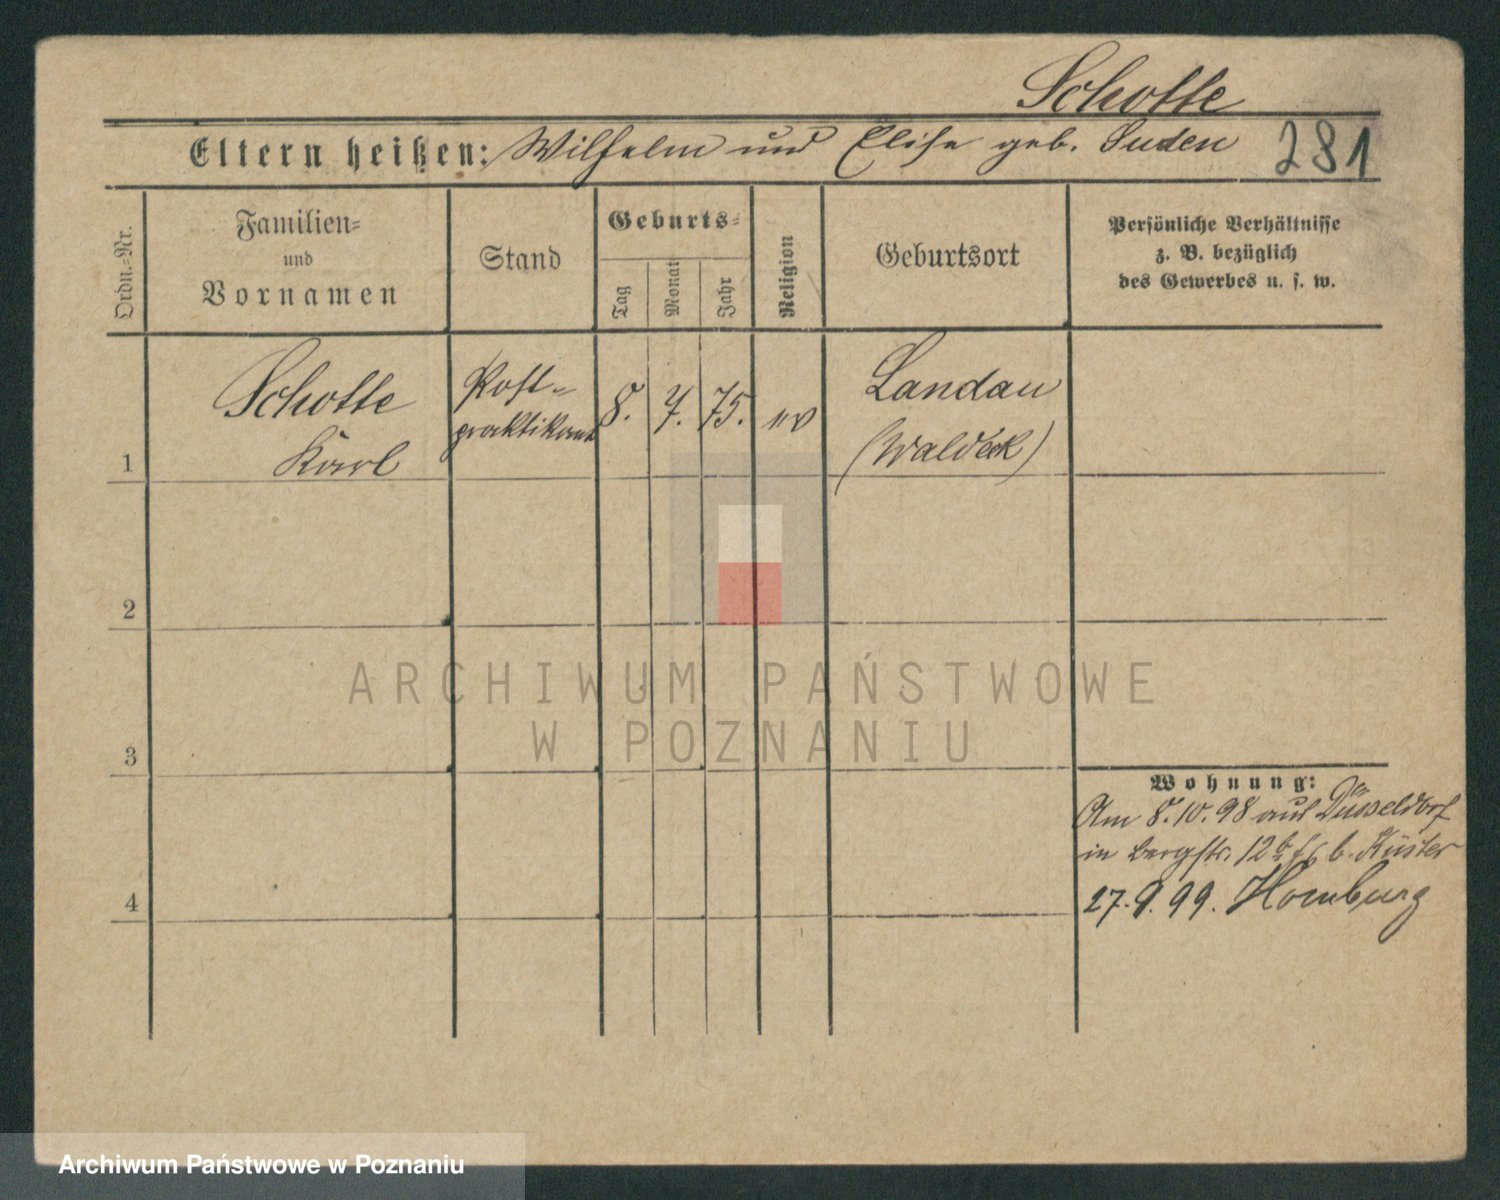 Schotte
Eltern heißen: Wilhelm und Elise geb. Suden
281
Ordn.-Nr.
Familien-
und
Vornamen
Stand
Geburts-
Tag
Monat
Jahr
Religion
Geburtsort
Persönliche Verhältnisse
z. B. bezüglich
des Gewerbes u. s. w.
1
Schotte
Karl
Post-
praktikant
8.
7.
75.
ev
Landau
(Waldeck)
2
3
4
Wohnung:
Am 8.10.98 aus Düsseldorf
in Bergstr. 12b b. Küster
27.9.99. Homburg
ARCHIWUM PAŃSTWOWE
W POZNANIU
Archiwum Państwowe w Poznaniu